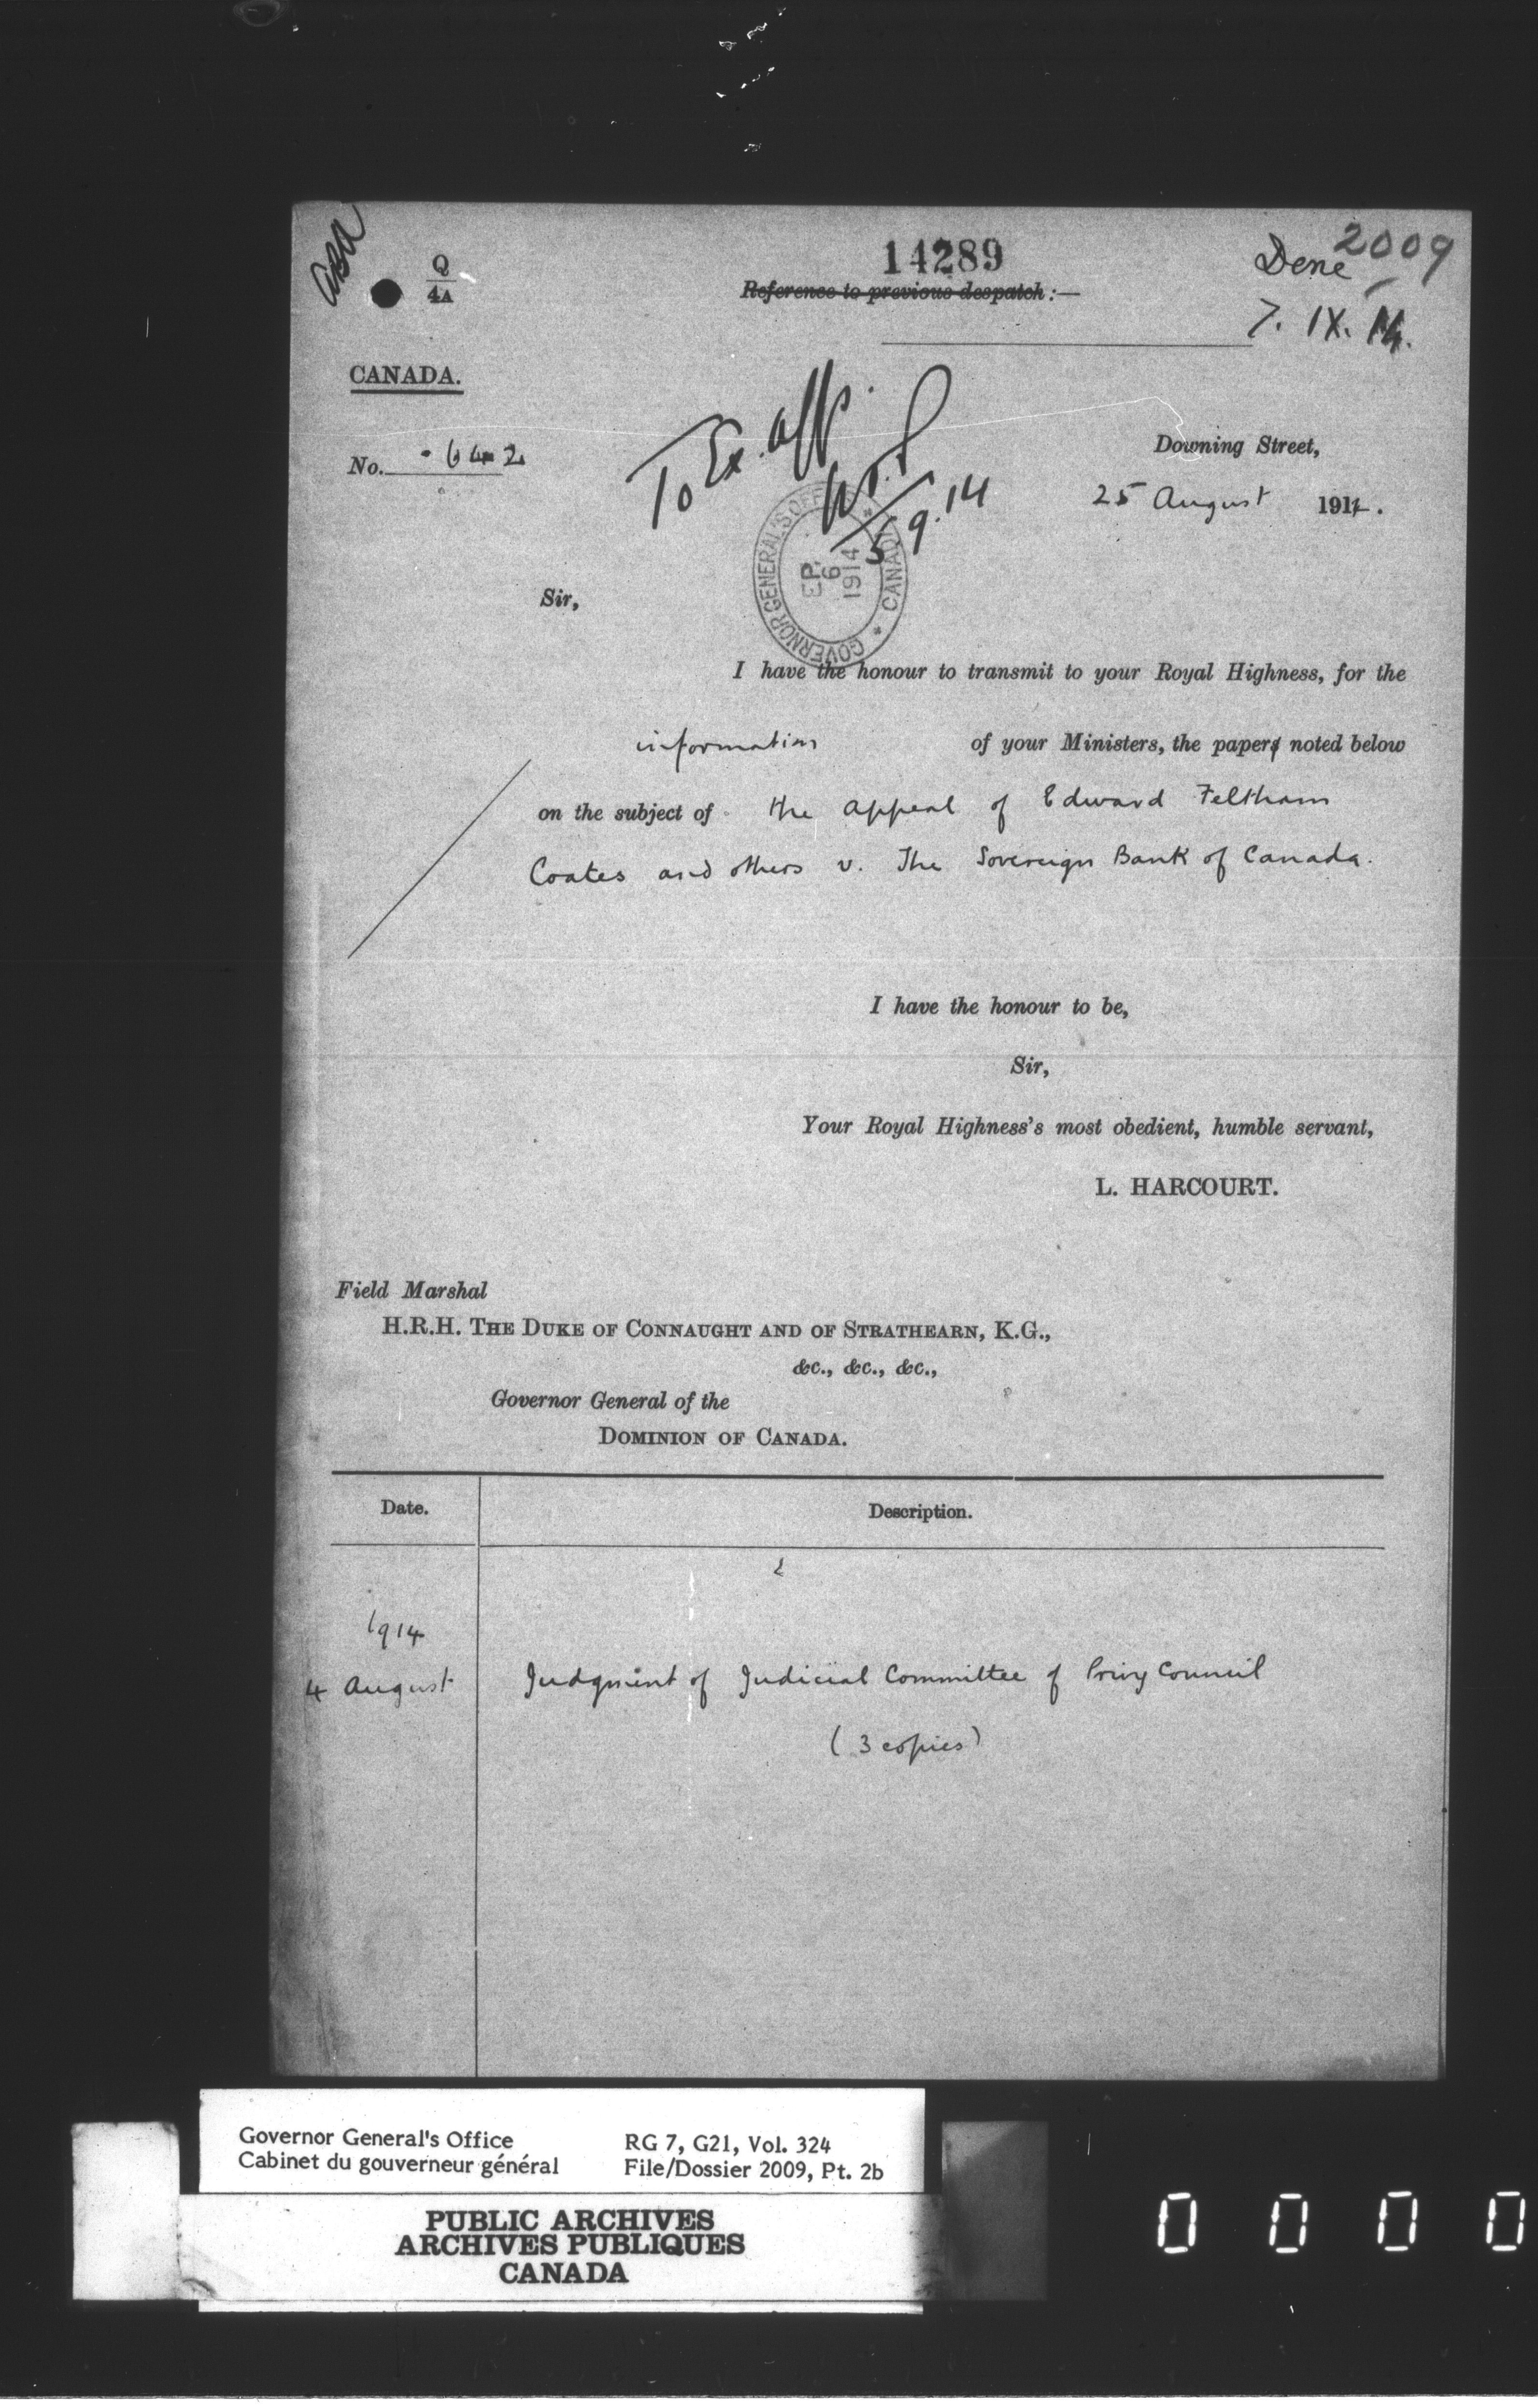 14289
2009
Q
4A
Reference to previous despatch:—
7. IX. 14.
CANADA.
No. 642
To Ex. Off.
5.9.14
Downing Street,
25 August 1914.
GOVERNOR GENERAL'S OFFICE * CANADA *
EP. 6 1914
Sir,
I have the honour to transmit to your Royal Highness, for the
information of your Ministers, the papers noted below
on the subject of the appeal of Edward Feltham
Coates and others v. The Sovereign Bank of Canada.
I have the honour to be,
Sir,
Your Royal Highness's most obedient, humble servant,
L. HARCOURT.
Field Marshal
H.R.H. THE DUKE OF CONNAUGHT AND OF STRATHEARN, K.G.,
&c., &c., &c.,
Governor General of the
DOMINION OF CANADA.
Date. Description.
1914
4 August Judgment of Judicial Committee of Privy Council
(3 copies)
Governor General's Office RG 7, G21, Vol. 324
Cabinet du gouverneur général File/Dossier 2009, Pt. 2b
PUBLIC ARCHIVES
ARCHIVES PUBLIQUES
CANADA
0 0 0 0